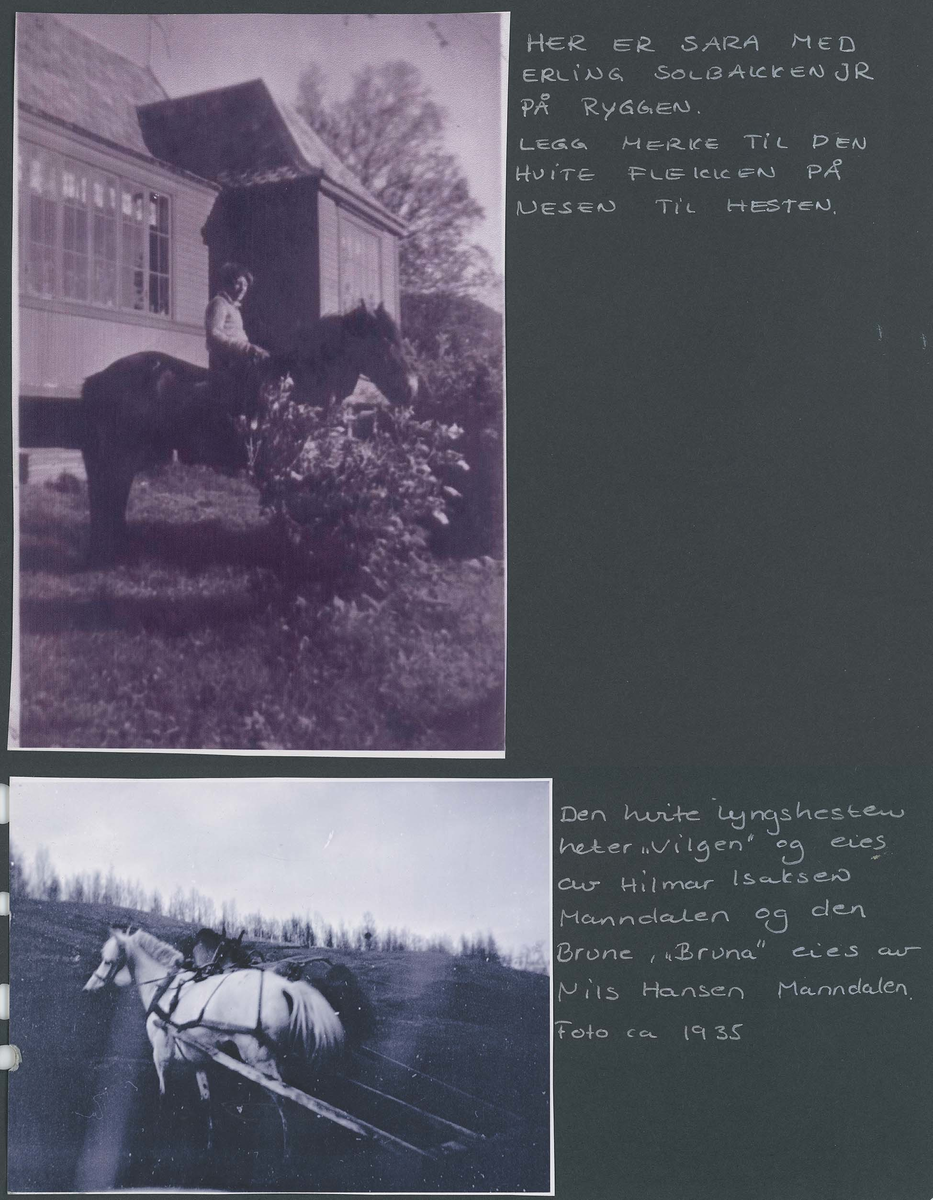 HER ER SARA MED
ERLING SOLBAKKEN JR
PÅ RYGGEN.
LEGG MERKE TIL DEN
HVITE FLEKKEN PÅ
NESEN TIL HESTEN.
Den hvite lyngshesten
heter „Vilgen" og eies
av Hilmar Isaksen
Manndalen og den
Brune, „Bruna" eies av
Nils Hansen Manndalen.
Foto ca 1935